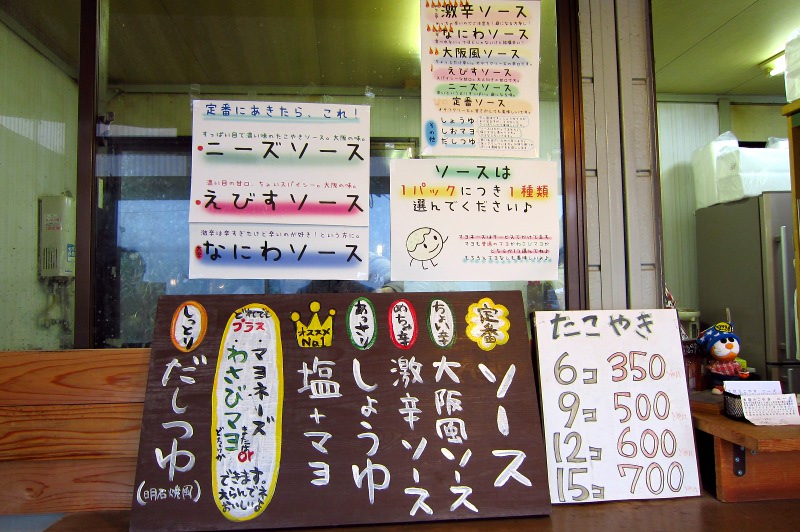 定番にあきたら、これ!
すっぱい目で濃い味のたこやきソース。大阪の味。
ニーズソース
濃い目の甘口、ちょいスパイシー。大阪の味。
えびすソース
激辛は辛すぎたけど辛いのが好き!という方に。
なにわソース
激辛ソース
なにわソース
大阪風ソース
えびすソース
ニーズソース
定番ソース
その他
しょうゆ
しおマヨ
だしつゆ
ソースは
1パックにつき1種類
選んでください♪
定番
ソース
ちょい辛
大阪風ソース
めちゃ辛
激辛ソース
あっさり
しょうゆ
オススメ
No.1
塩+マヨ
どれでも
プラス
・マヨネーズ
または or
・わさびマヨ
どちらか
しっとり
だしつゆ
(明石焼風)
たこやき
6コ 350
9コ 500
12コ 600
15コ 700